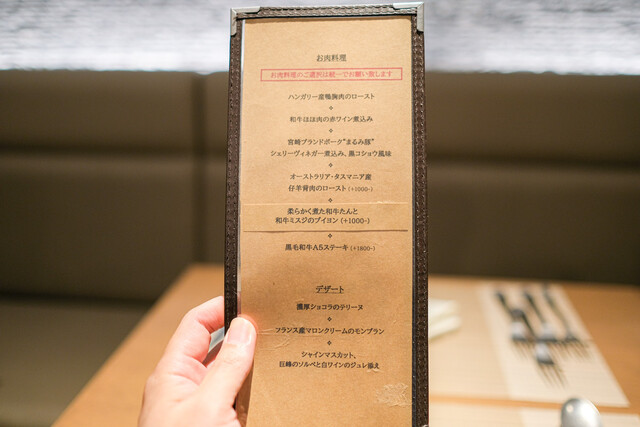 お肉料理
お肉料理のご選択は統一でお願い致します
ハンガリー産鴨胸肉のロースト
和牛ほほ肉の赤ワイン煮込み
宮崎ブランドポーク"まるみ豚"
シェリーヴィネガー煮込み、黒コショウ風味
オーストラリア・タスマニア産
仔羊背肉のロースト (+1000-)
柔らかく煮た和牛たんと
和牛ミスジのブイヨン (+1000-)
黒毛和牛A5ステーキ (+1800-)
デザート
濃厚ショコラのテリーヌ
フランス産マロンクリームのモンブラン
シャインマスカット、
巨峰のソルベと白ワインのジュレ添え